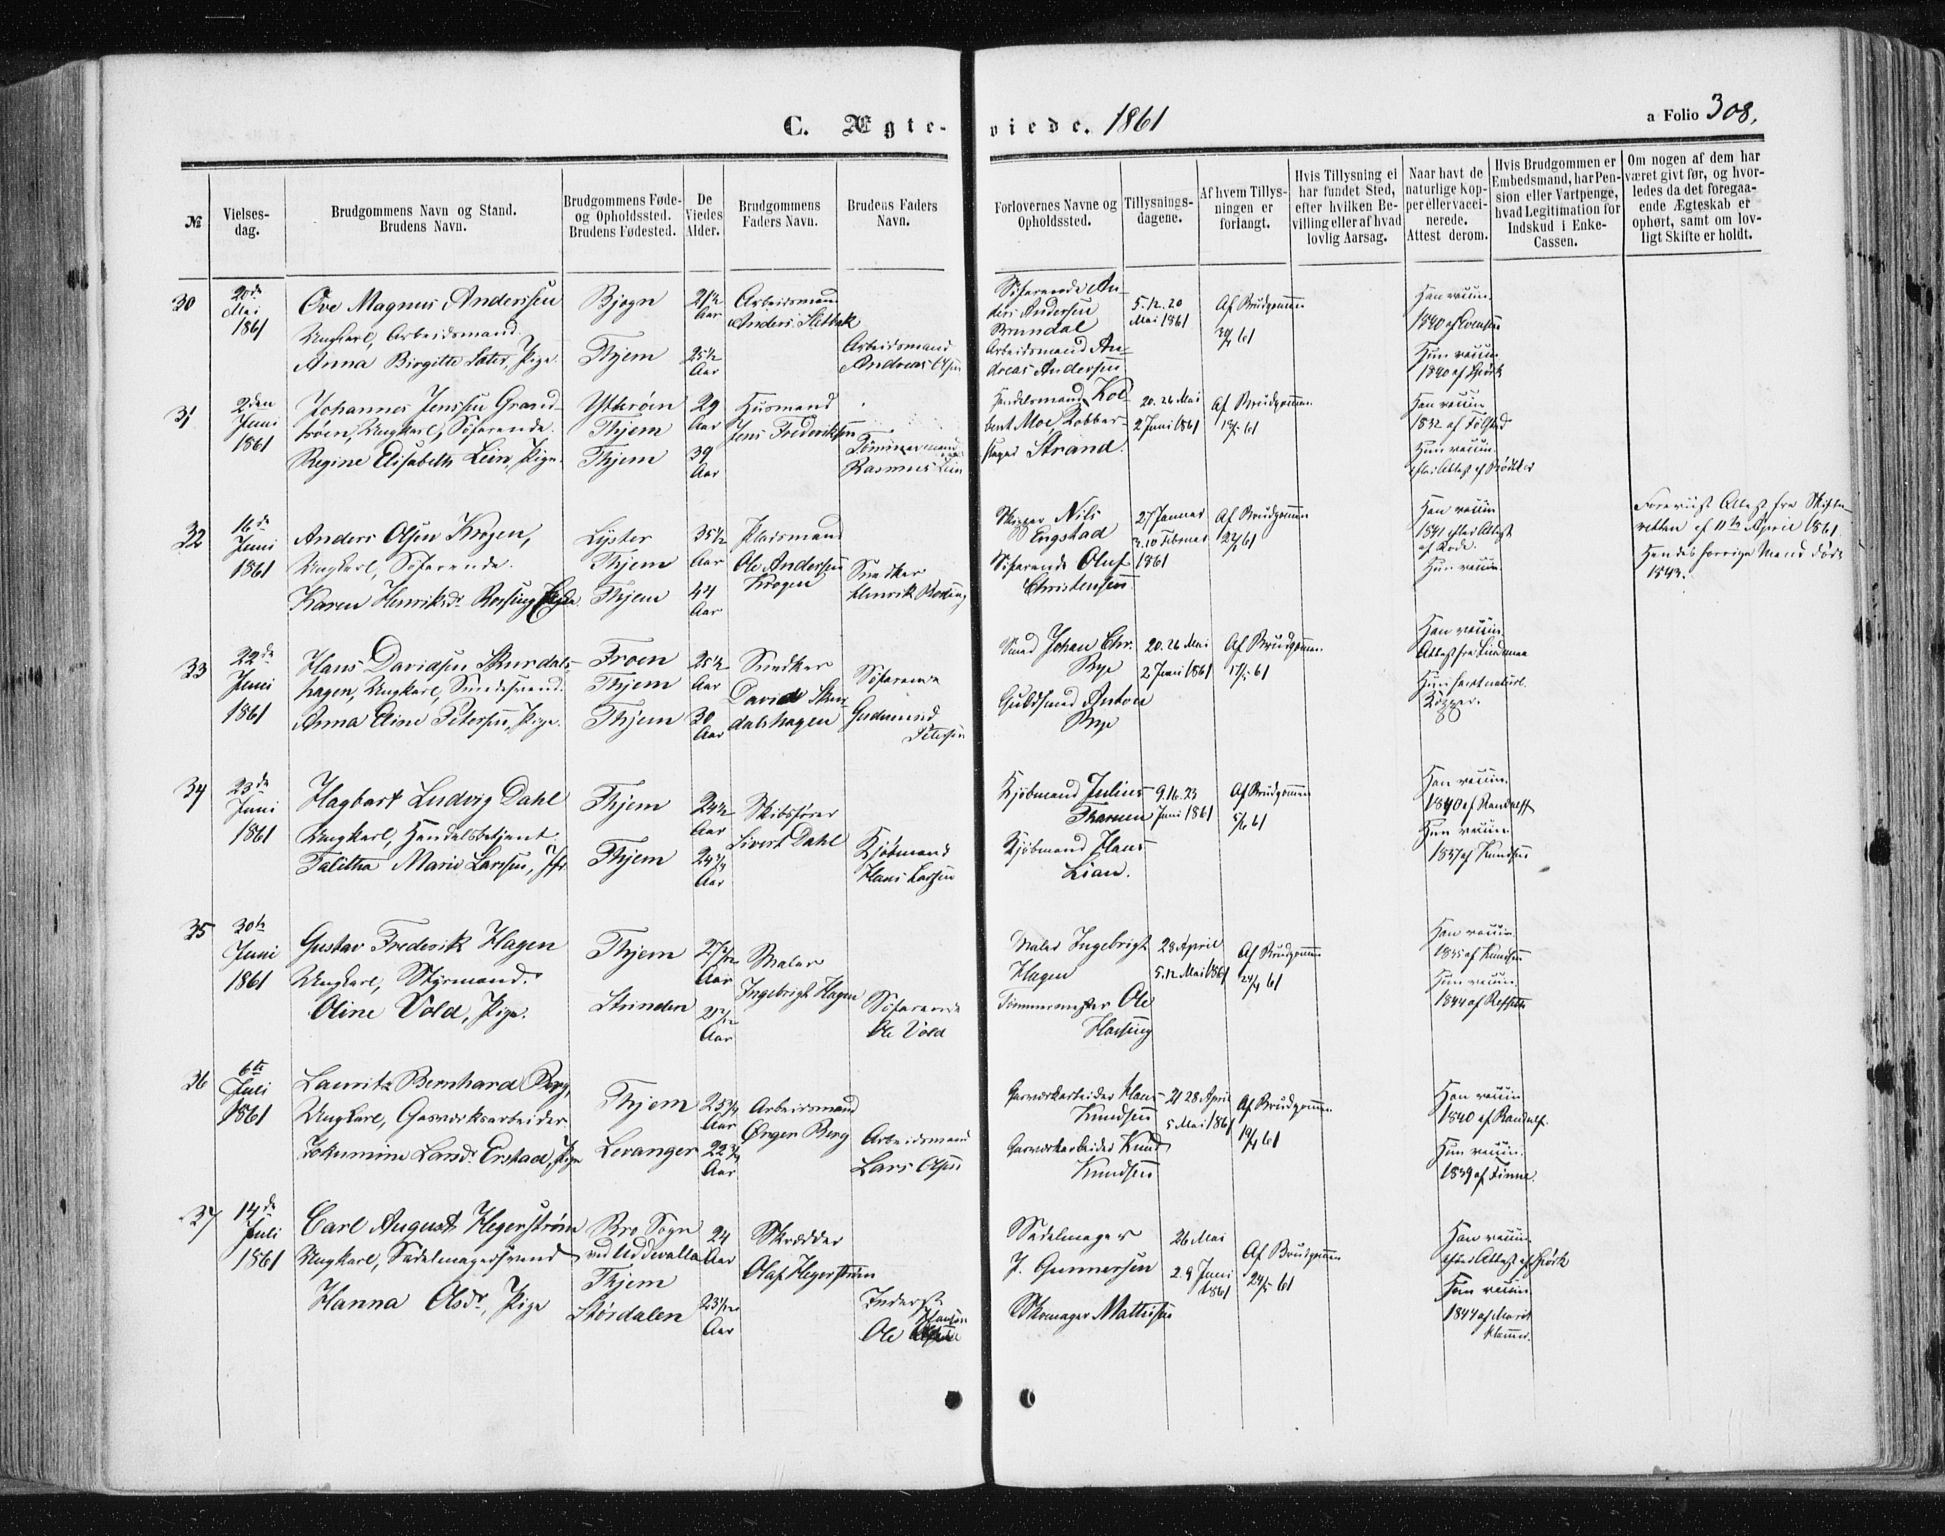 C. Ægte-viede. 1861
a Folio 308.
№
Vielses-
dag.
Brudgommens Navn og Stand.
Brudens Navn.
Brudgommens Føde-
og Opholdssted.
Brudens Fødested.
De
Viedes
Alder.
Brudgommens
Faders Navn.
Brudens Faders
Navn.
Forlovernes Navne og
Opholdssted.
Tillysnings-
dagene.
Af hvem Tillys-
ningen er
forlangt.
Hvis Tillysning ei
har fundet Sted,
efter hvilken Be-
villing eller af hvad
lovlig Aarsag.
Naar havt de
naturlige Kop-
per eller vacci-
nerede.
Attest derom.
Hvis Brudgommen er
Embedsmand, har Pen-
sion eller Vartpenge,
hvad Legitimation for
Indskud i Enke-
Cassen.
Om nogen af dem har
været givt før, og hvor-
ledes da det foregaa-
ende Ægteskab er
ophørt, samt om lov-
ligt Skifte er holdt.
30
20de
Mai
1861
Ove Magnus Anderssen
Ungkarl, Arbeidsmand.
Anna Birgitte Sæter, Pige.
Thjem
21½
Aar
25½
Aar
Arbeidsmand
Anders
Arbeidsmand
Andreas Olsen
Søfarende An-
ders Andersen
Brundal
Arbeidsmand An-
dreas Andersen
5.12.20
Mai 1861
Af Brudgommen
Han vaccin.
1840 af Evensen
Hun vaccin.
1840 af
31
2den
Juni
1861
Johannes Jenssen Grand-
trøen, Ungkarl, Søfarende.
Regine Elisabeth Lein, Pige.
Ytterøen
Thjem
Thjem
29
Aar
39
Aar
Husmand
Jens Frederiksen
Tømmermand
Rasmus Lein
Handelsmand Kol-
bent Moe, Kobber-
slager Strand.
20.26 Mai
2 Juni 1861
Af Brudgommen
Han vaccin
1832 af
Hun vaccin.
32
16de
Juni
1861
Anders Olsen Krogen,
Ungkarl, Søfarende.
Karen Henriksdr. Rossing, Enke.
Lyster
Thjem
Thjem
35½
Aar
44
Aar
Pladsmand
Ole Andersen
Krogen
Snedker
Henrik Rossing
Skipper Nils
Engstad
Søfarende Oluf
Christensen
27 Januar
3.10 Februar
1861
Af Brudgommen
Han vaccin
1841 efter Attest
af Rode.
Hun vaccin.
Foreviist Attest fra Skifte-
retten af 11te April 1861.
Hendes forrige Mand døde
1843.
33
22de
Juni
1861
Hans Davidsen Skurdals-
hagen, Ungkarl, Smedesvend.
Anna Eline Petersen, Pige.
Froen
Thjem
Thjem
25½
Aar
30
Aar
Snedker
David Skur-
dalshagen
Søfarende
Gudmund
Petersen
Smed Johan Chr.
Rye
Guldsmed Anton
Rye
20.26 Mai
2 Juni 1861
Af Brudgommen
Han vaccin.
Attest fra Lindeman
Hun havt naturl.
Kopper.
34
23de
Juni
1861
Hagbart Ludvig Dahl
Ungkarl, Handelsbetjent.
Talitha Marie Larssen, Jfr.
Thjem
Thjem
24½
Aar
24½
Aar
Skibsfører
Sivert Dahl
Kjøbmand
Hans Larssen
Kjøbmand Julius
Kjøbmand Hans
Lian.
9.16.23
Juni 1861
Af Brudgommen
Han vaccin.
1840 af Randulff
Hun vaccin.
1837 af Knudsen
35
30te
Juni
1861
Gustav Frederik Hagen
Ungkarl, Styrmand.
Oline Vold, Pige.
Thjem
Strinden
Aar
Aar
Maler
Ingebrigt Hagen
Søfarende
Ole Vold
Maler Ingebrigt
Hagen
Tømmermester Ole
28 April
5.12 Mai 1861
Af Brudgommen
Han vaccin.
1835 af Knudsen
Hun vaccin.
1844 af
36
6te
Juli
1861
Lauritz Bernhard Berg,
Ungkarl, Gasværksarbeider
Jokumine Larsdr. Erstad, Pige
Thjem
Levanger
Aar
Aar
Arbeidsmand
Ørgen Berg
Arbeidsmand
Lars Olsen
Gasværkarbeider Hans
Knudsen
Gasværkarbeider Knud
Knudsen
21 28 April
5 Mai 1861
Af Brudgommen
Han vaccin
1840 af Randulf.
Hun vaccin.
1839 af Finne.
37
14de
Juli
1861
Carl August Hegerstrøm
Ungkarl, Sadelmagersvend
Hanna Olsdr., Pige
Bro Sogn
ved Uddevalla
Thjem
Størdalen
24
Aar
Aar
Skrædder
Olaf Hegerstrøm
Inderst
Ole
Sadelmager
J. Gunnersen
Skomager Mathisen
26 Mai
2.9 Juni
1861
Af Brudgommen
Han vaccin.
efter Attest af
Hun vaccin.
1847 af